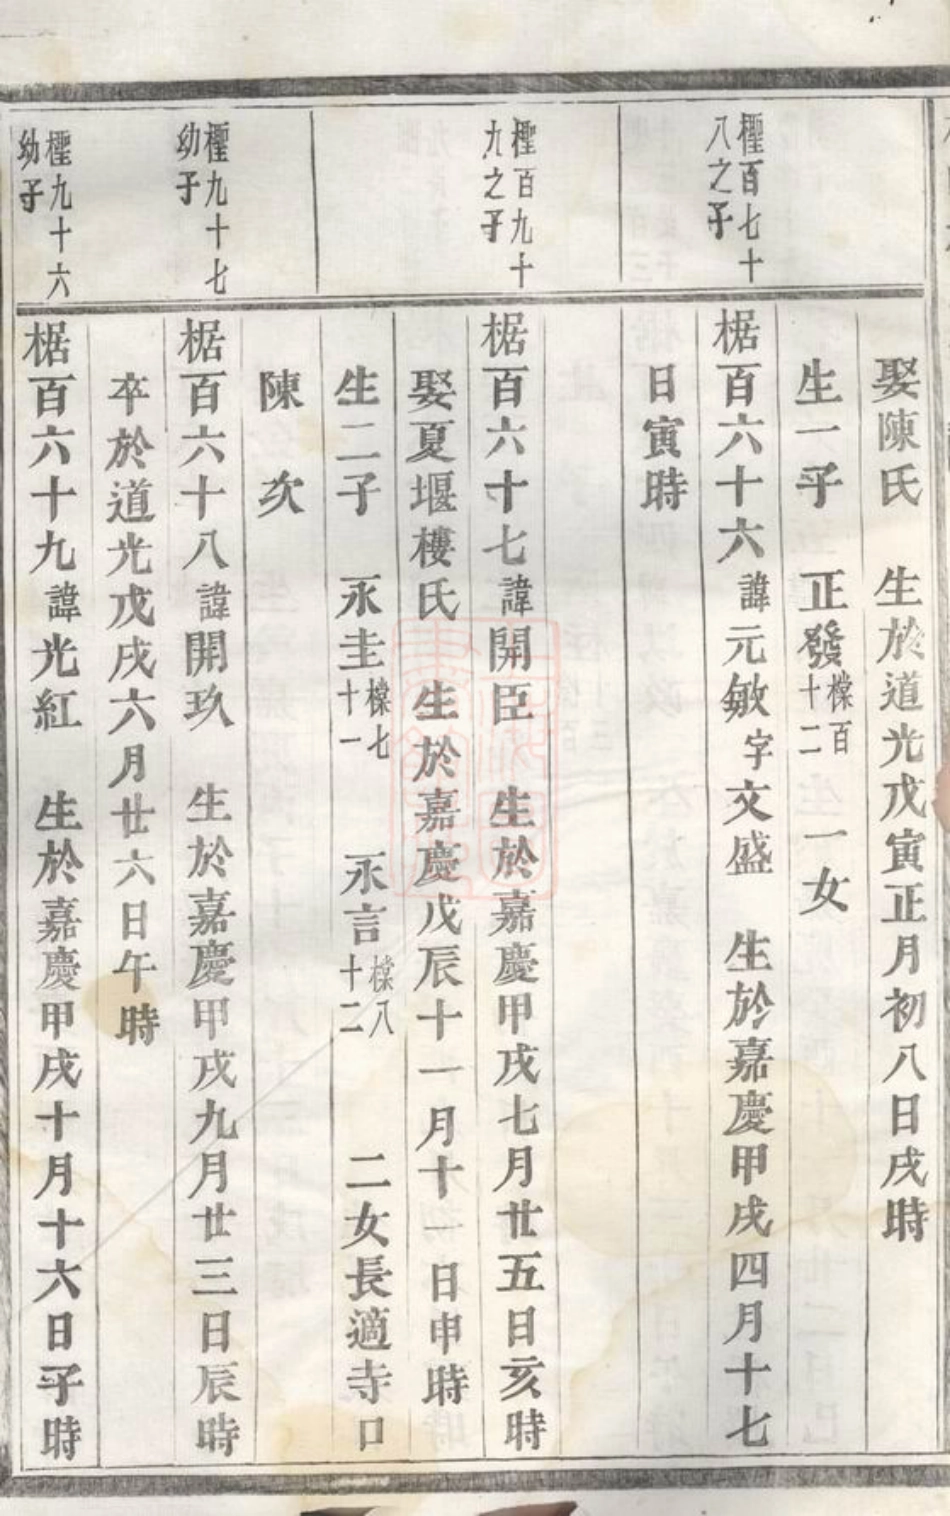 娶陳氏　生於道光戊寅正月初八日戌時
生一子　正發檪百十二　一女
檉百七十八之子
椐百六十六諱元敏字文盛　生於嘉慶甲戌四月十七
日寅時
檉百九十九之子
椐百六十七諱開臣　生於嘉慶甲戌七月廿五日亥時
娶夏堰樓氏　生於嘉慶戊辰十一月十一日申時
生二子　永圭檪七十一　永言檪八十二　二女長適寺口
陳　次
檉九十七幼子
椐百六十八諱開玖　生於嘉慶甲戌九月廿三日辰時
卒於道光戊戌六月廿六日午時
檉九十六幼子
椐百六十九諱光紅　生於嘉慶甲戌十月十六日子時